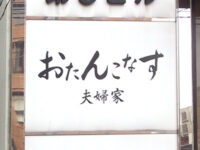 おたんこなす
夫婦家